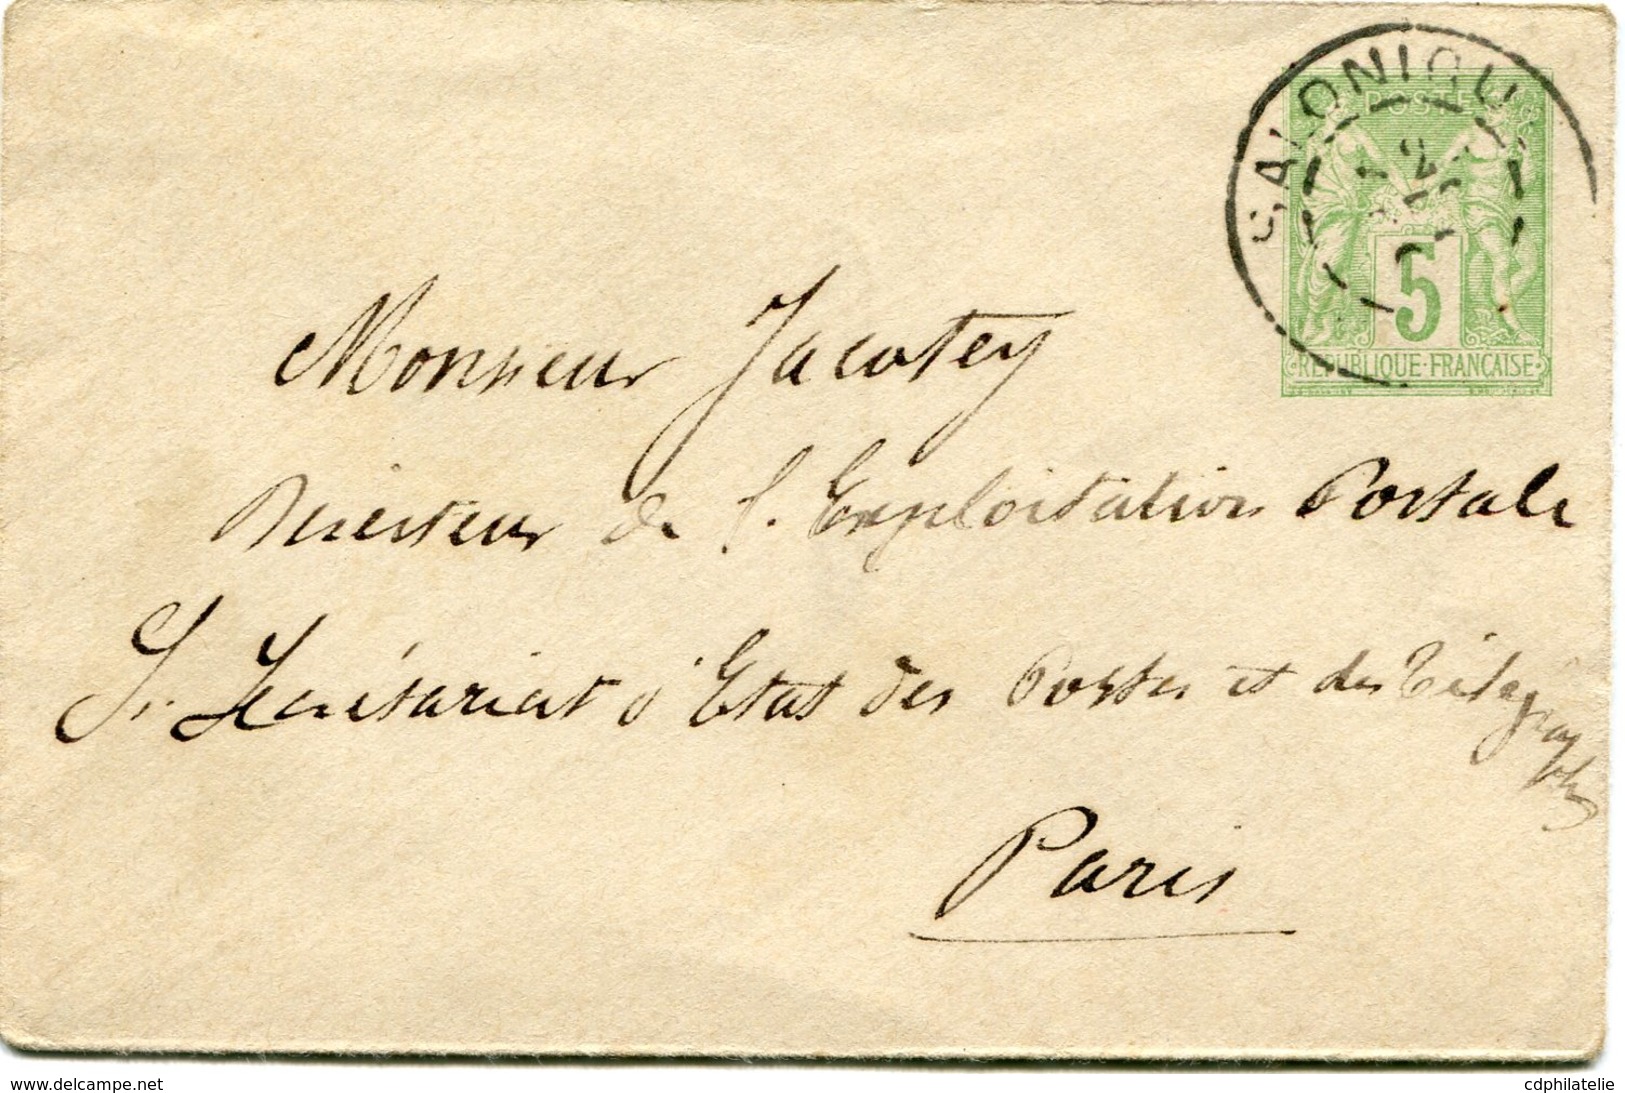 SALONIQU
POSTE
5
REPUBLIQUE FRANÇAISE
Monsieur Jacotey
Directeur de l'Exploitation Postale
S. Secrétariat d'Etat des Postes et des Télégraphes
Paris
www.delcampe.net
cdphilatelie